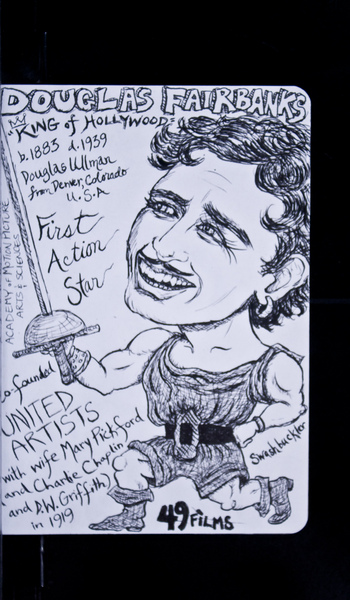 DOUGLAS FAIRBANKS
"KING of HOLLYWOOD"
b. 1883 d. 1939
Douglas Ullman
from Denver, Colorado
U.S.A
First
Action
Star
ACADEMY of MOTION PICTURE
ARTS & SCIENCES
co-founded
UNITED
ARTISTS
with wife Mary Pickford
and Charlie Chaplin
and D.W. Griffith)
in 1919
Swashbuckler
49 FILMS